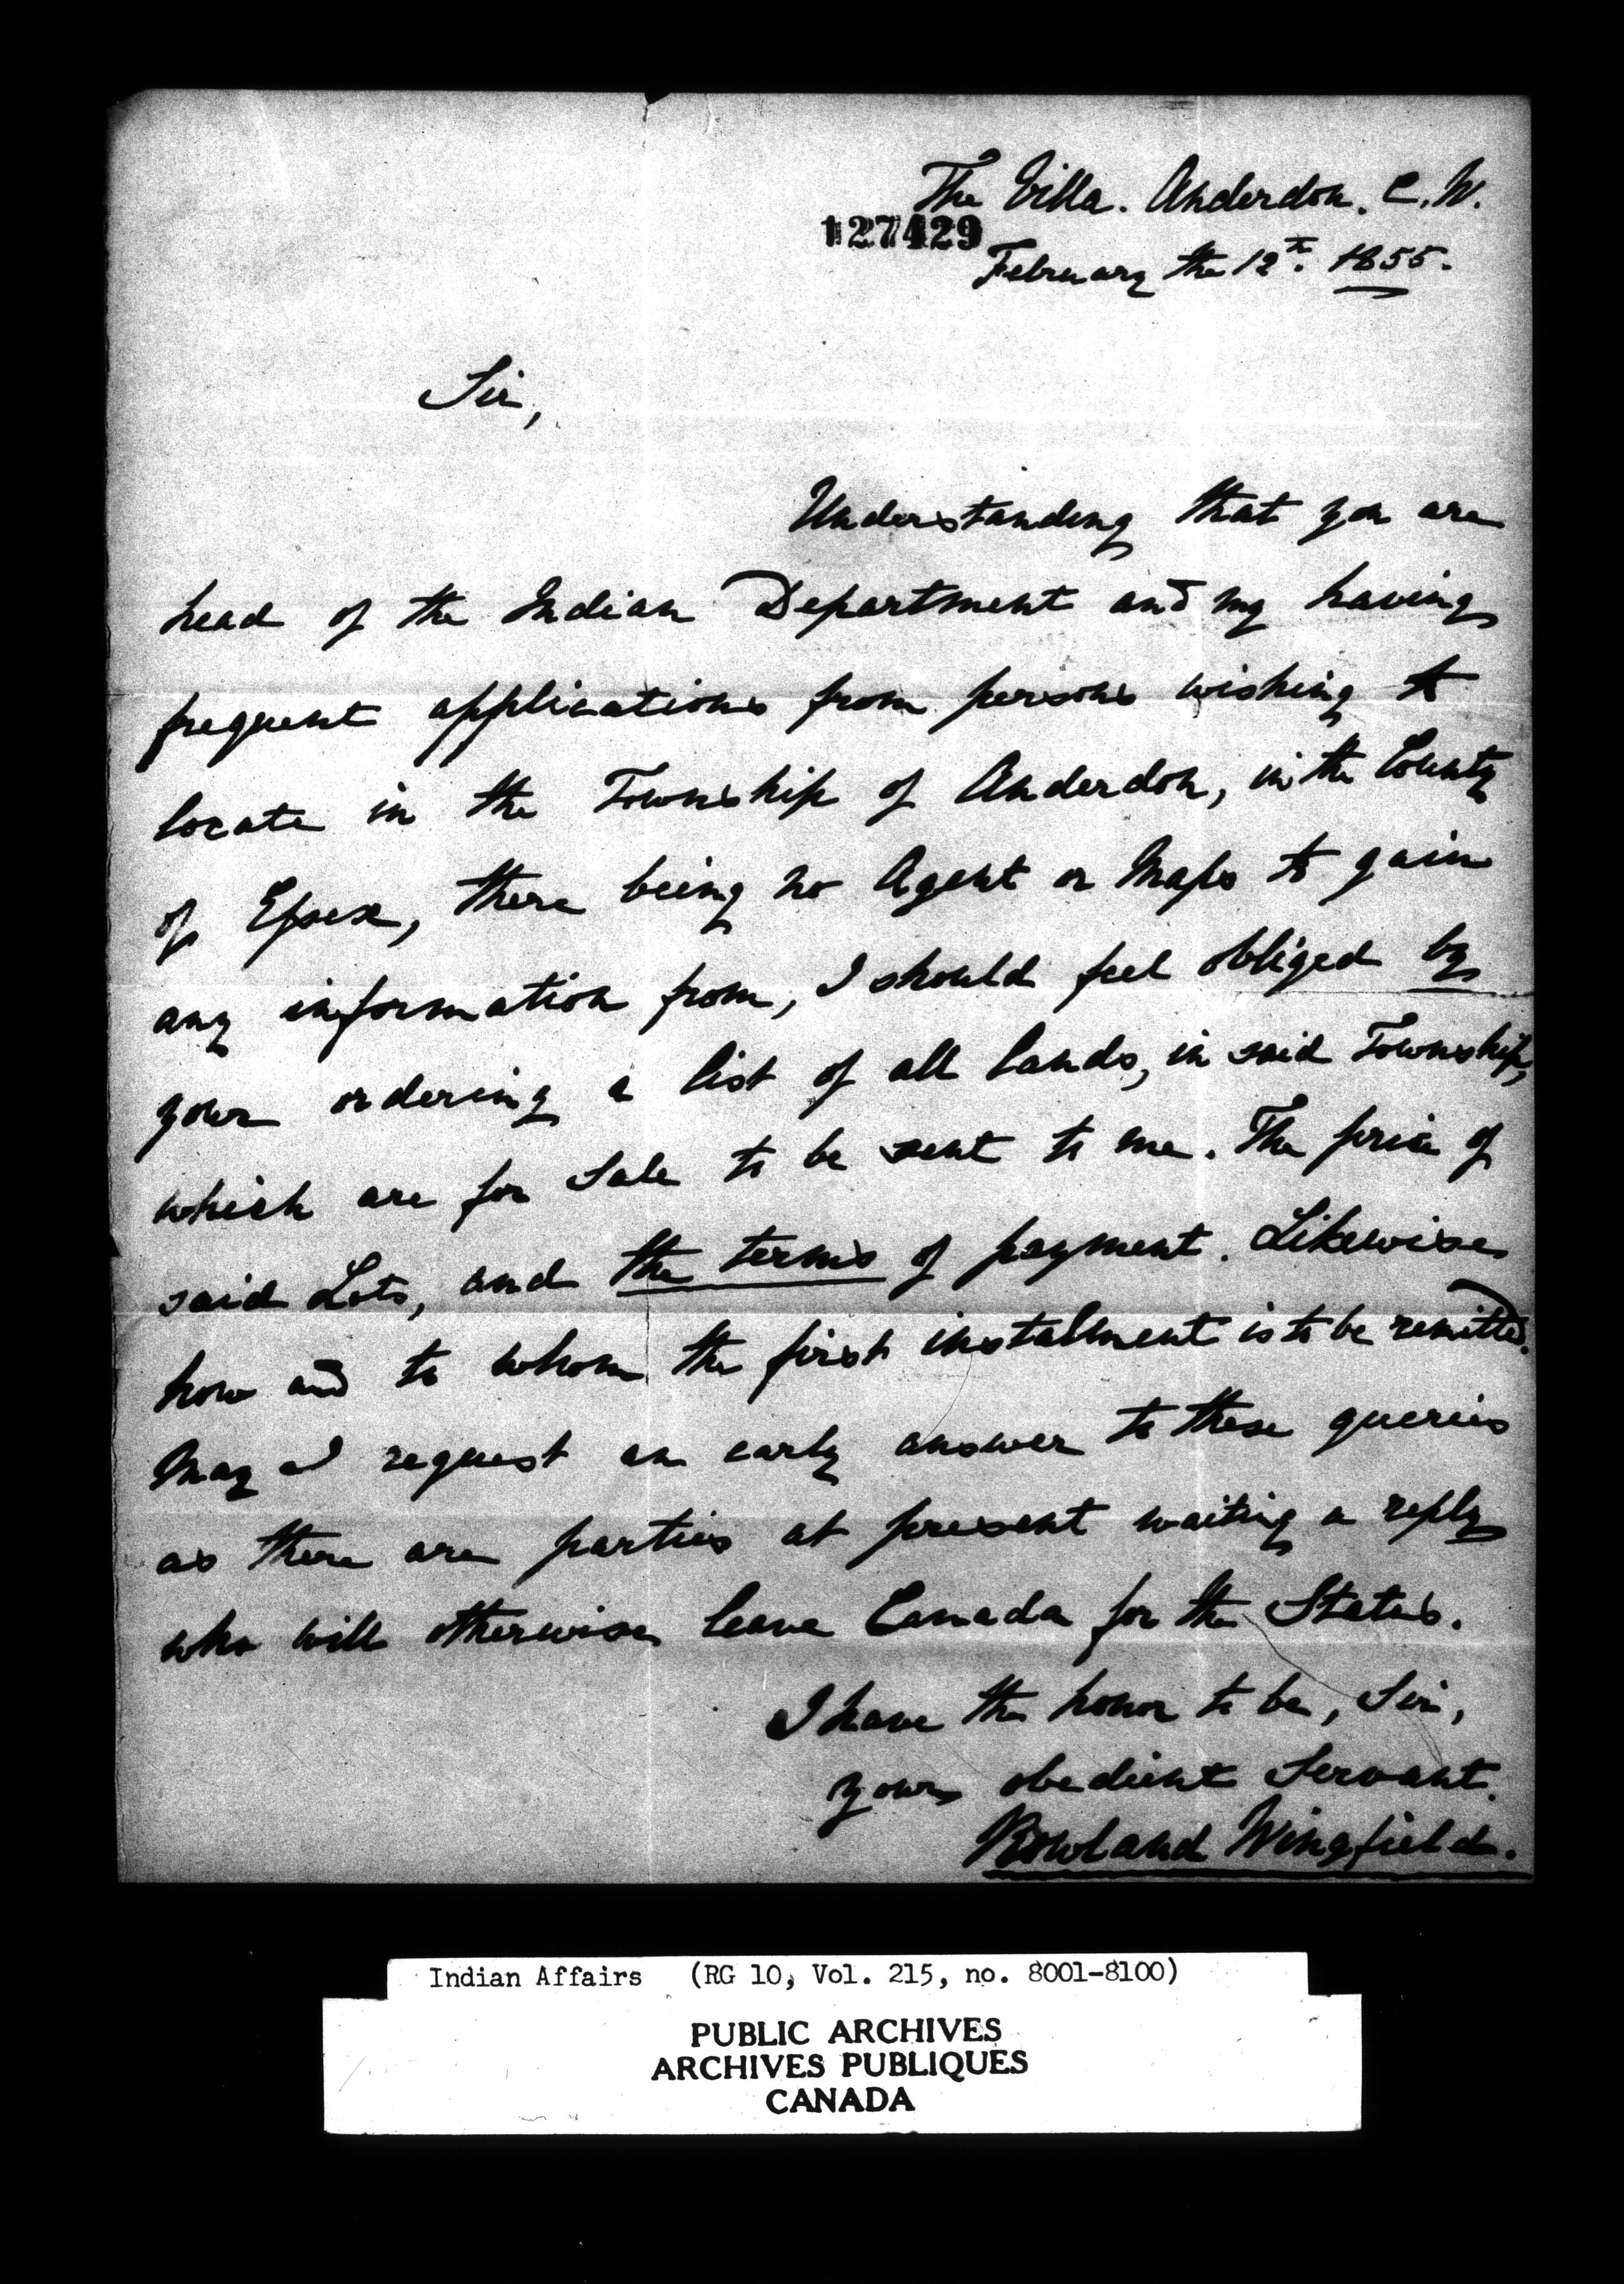 The Villa. Anderdon. C. W.
127429
February the 12th. 1855.
Sir,
Understanding that you are
head of the Indian Department and my having
frequent applications from persons wishing to
locate in the Township of Anderdon, in the County
of Essex, there being no Agent or Maps to gain
any information from, I should feel obliged by
your ordering a list of all lands, in said Township,
which are for Sale to be sent to me. The price of
said Lots, and the terms of payment. Likewise
how and to whom the first instalment is to be remitted.
May I request an early answer to these queries
as there are parties at present waiting a reply
who will otherwise leave Canada for the States.
I have the honor to be, Sir,
your obedient Servant.
Rowland Wingfield.
Indian Affairs (RG 10, Vol. 215, no. 8001-8100)
PUBLIC ARCHIVES
ARCHIVES PUBLIQUES
CANADA